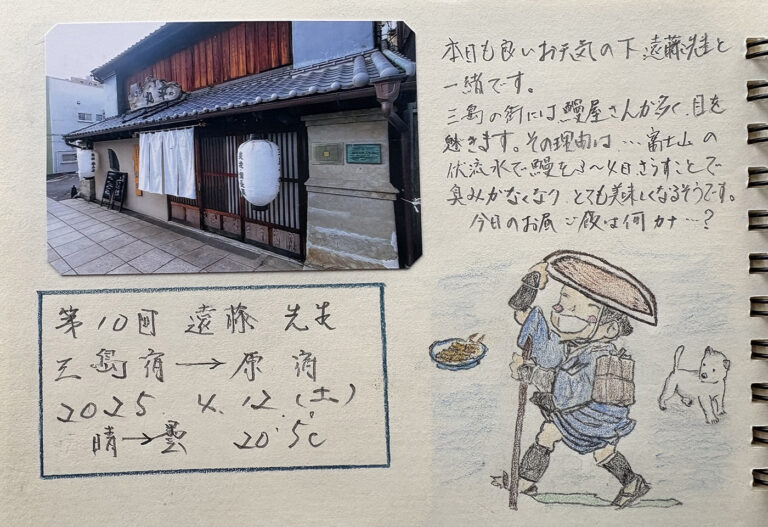 本日も良いお天気の下 遠藤先生と
一緒です。
三島の街には鰻屋さんが多く、目を
魅きます。その理由は…富士山の
伏流水で鰻を3〜4日さらすことで
臭みがなくなり とても美味しくなるそうです。
今日のお昼ご飯は何カナ…?
第10回 遠藤 先生
三島宿→原宿
2025 4.12.(土)
晴→曇 20.5℃